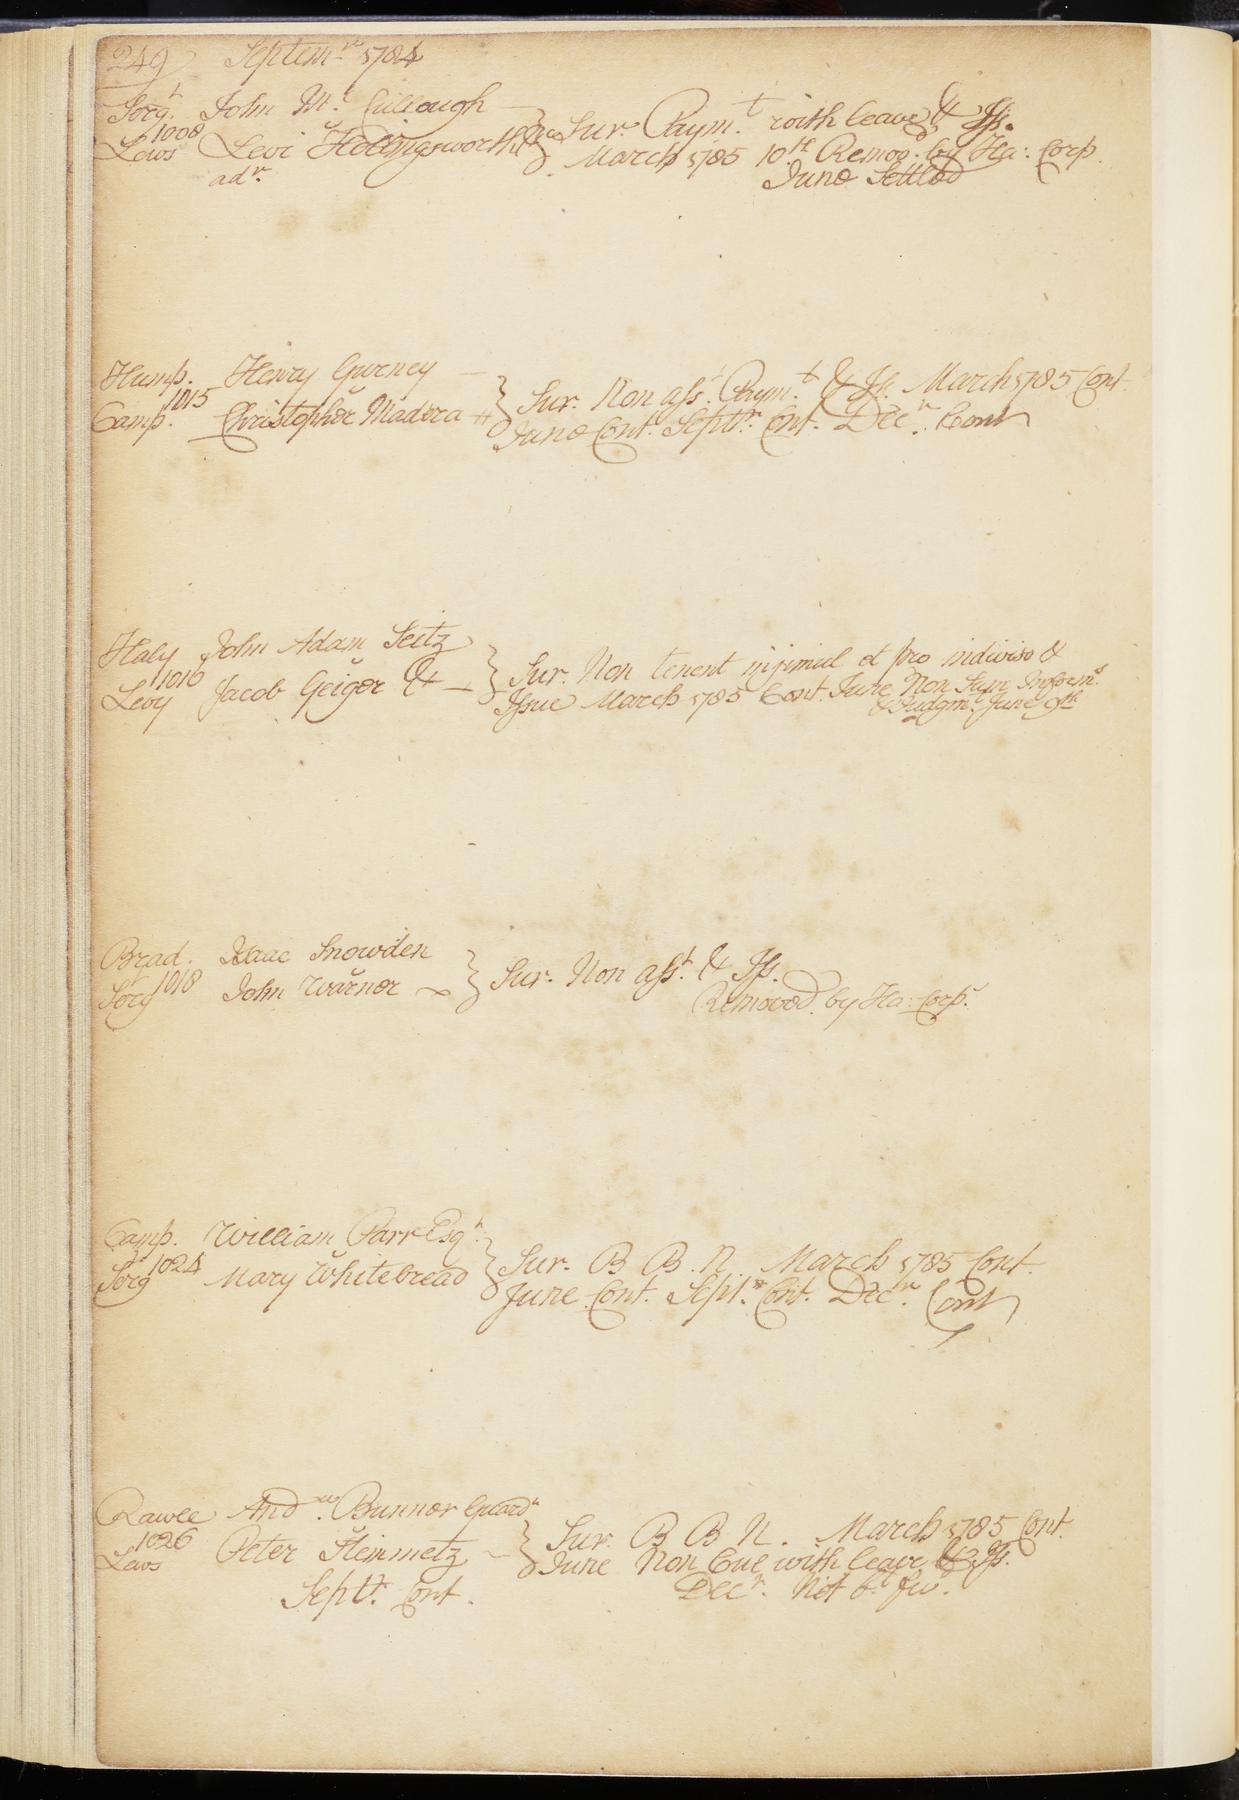 249 Septem.r 1784
Serg.t John M.c Cullough
1008
Lews Levi Hollingsworth Sur. Paym.t with leave & Iss.
adr. March 1785 10th Remov. by Ha: Corp.
June Settled
Hump. Henry Gurney
1015
Camp. Christopher Madera Sur. Non ass.t Paym.t & Iss. March 1785 Cont.
June Cont. Septr. Cont. Decr. Cont
Haly John Adam Seitz
1016
Levy Jacob Geiger & Sur. Non tenent insimul et pro indiviso &
Issue March 1785 Cont. June Non Sum Inform.s
& Judgm.t June 9th
Brad. Isaac Snowden
1018
Serg John Warner Sur. Non ass.t & Iss.
Removed by Ha: Corps
Camp. William Parr Esqr.
1024
Serg Mary Whitebread Sur. B B. N March 1785 Cont.
June Cont. Sept.r Cont. Decr. Cont
Rawle And.w Bunner Guardn
1026
Lews Peter Steinmetz Sur. B B N. March 1785 Cont.
June Non Cul with leave & Iss.
Septr. Cont. Decr. Not b.t fw.d